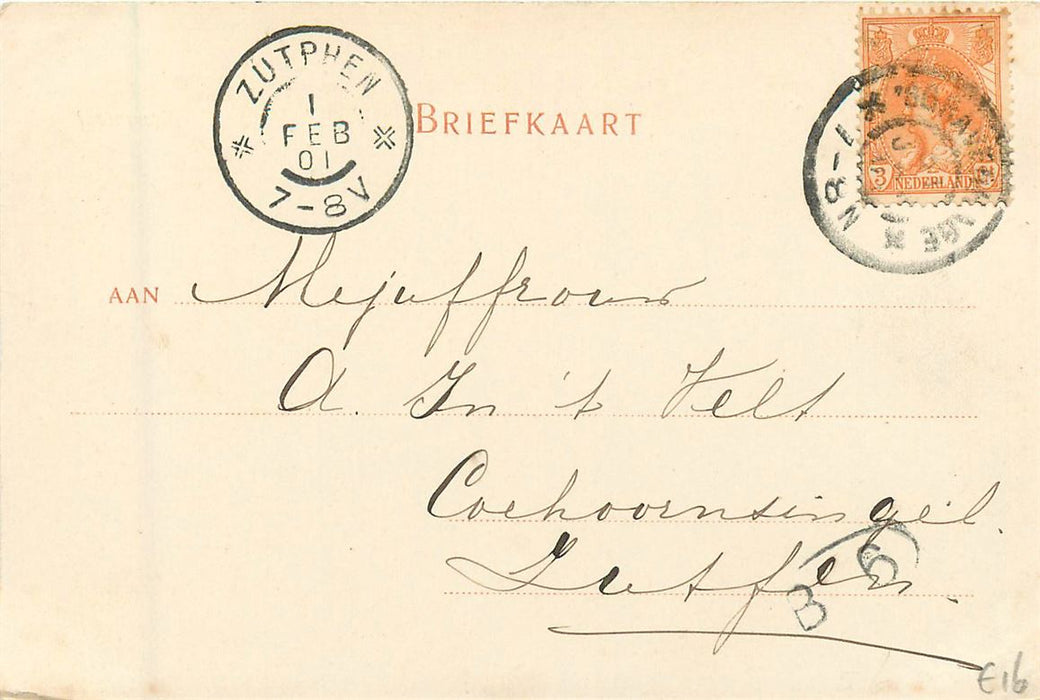 ZUTPHEN
1
FEB
01
7-8V
BRIEFKAART
7-8N
3
NEDERLAND
AAN Mejuffrouw
A. In 't Velt
Coehoornsingel.
Zutfen.
B 6
€16